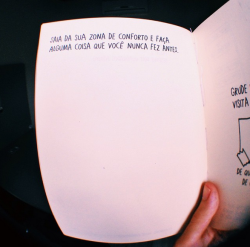 SAIA DA SUA ZONA DE CONFORTO E FAÇA
ALGUMA COISA QUE VOCÊ NUNCA FEZ ANTES.
GRUDE
VISITA
DE QU
DE